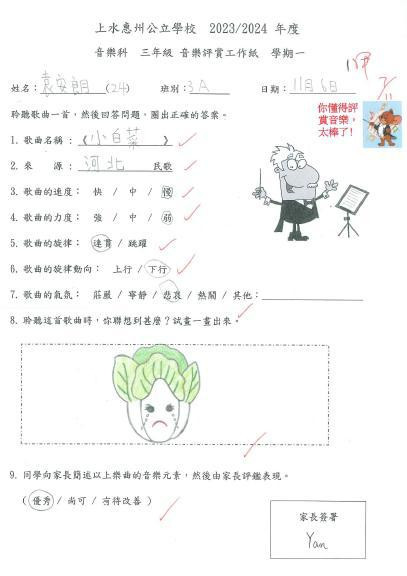 上水惠州公立學校 2023/2024 年度
音樂科 三年級 音樂評賞工作紙 學期一
姓名：袁安朗 (24) 班別：3A 日期：11月6日
聆聽歌曲一首，然後回答問題，圈出正確的答案。
你懂得評
賞音樂，
太棒了！
1. 歌曲名稱：《小白菜》
2. 來 源：河北 民歌
3. 歌曲的速度： 快 / 中 / 慢
4. 歌曲的力度： 強 / 中 / 弱
5. 歌曲的旋律： 連貫 / 跳躍
6. 歌曲的旋律動向： 上行 / 下行
7. 歌曲的氣氛： 莊嚴 / 寧靜 / 悲哀 / 熱鬧 / 其他：
8. 聆聽這首歌曲時，你聯想到甚麼？試畫一畫出來。
9. 同學向家長簡述以上樂曲的音樂元素，然後由家長評鑑表現。
( 優秀 / 尚可 / 有待改善 )
家長簽署
Yan